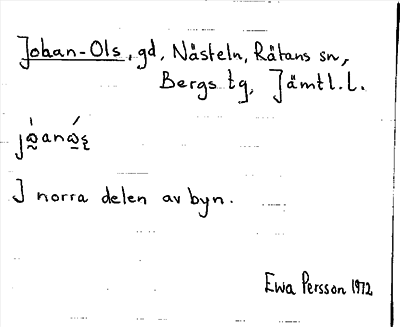 Johan-Ols, gd, Nästeln, Råtans sn,
Bergs tg, Jämtl.l.
I norra delen av byn.
Ewa Persson 1972